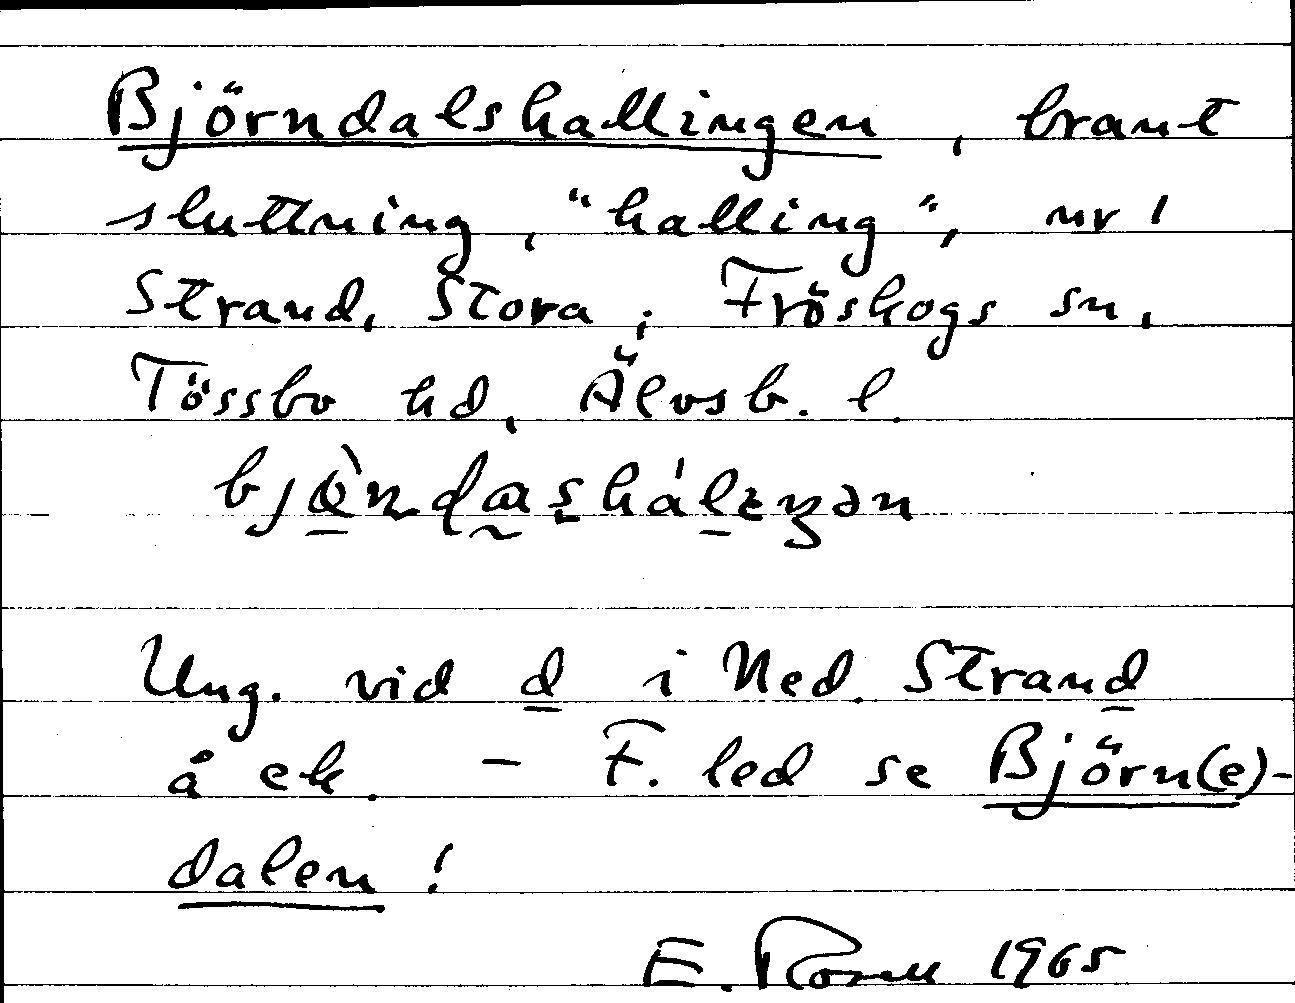 Björndalshallingen, brant
sluttning, "halling", nr 1
Strand, Stora, Fröskogs sn,
Tössbo hd, Älvsb. l.
Ung. vid d i Ned. Strand
å ek. – F. led se Björn(e)-
dalen!
E. 1965